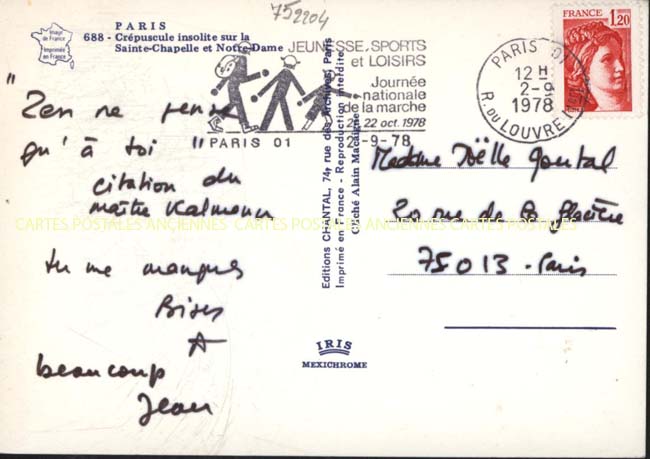 759204
PARIS
688 - Crépuscule insolite sur la
Sainte-Chapelle et Notre-Dame
Image de France
Imprimée en France
"Zen ne pense
qu'à toi"
citation du
maître Kalmann
tu me manques
Bises
*
beaucoup
Jean
JEUNESSE, SPORTS
et LOISIRS
Journée
nationale
de la marche
22 oct. 1978
PARIS 01
2-9-78
PARIS 01
12 H
2-9
1978
R. DU LOUVRE
FRANCE
1,20
Editions CHANTAL, 74, rue des Archives, Paris
Imprimé en France - Reproduction interdite
Cliché Alain Macaigne
Madame Joëlle Gontal
20 rue de la glacière
75013 - Paris
IRIS
MEXICHROME
CARTES POSTALES ANCIENNES CARTES POSTALES ANCIENNES CARTES POSTALES